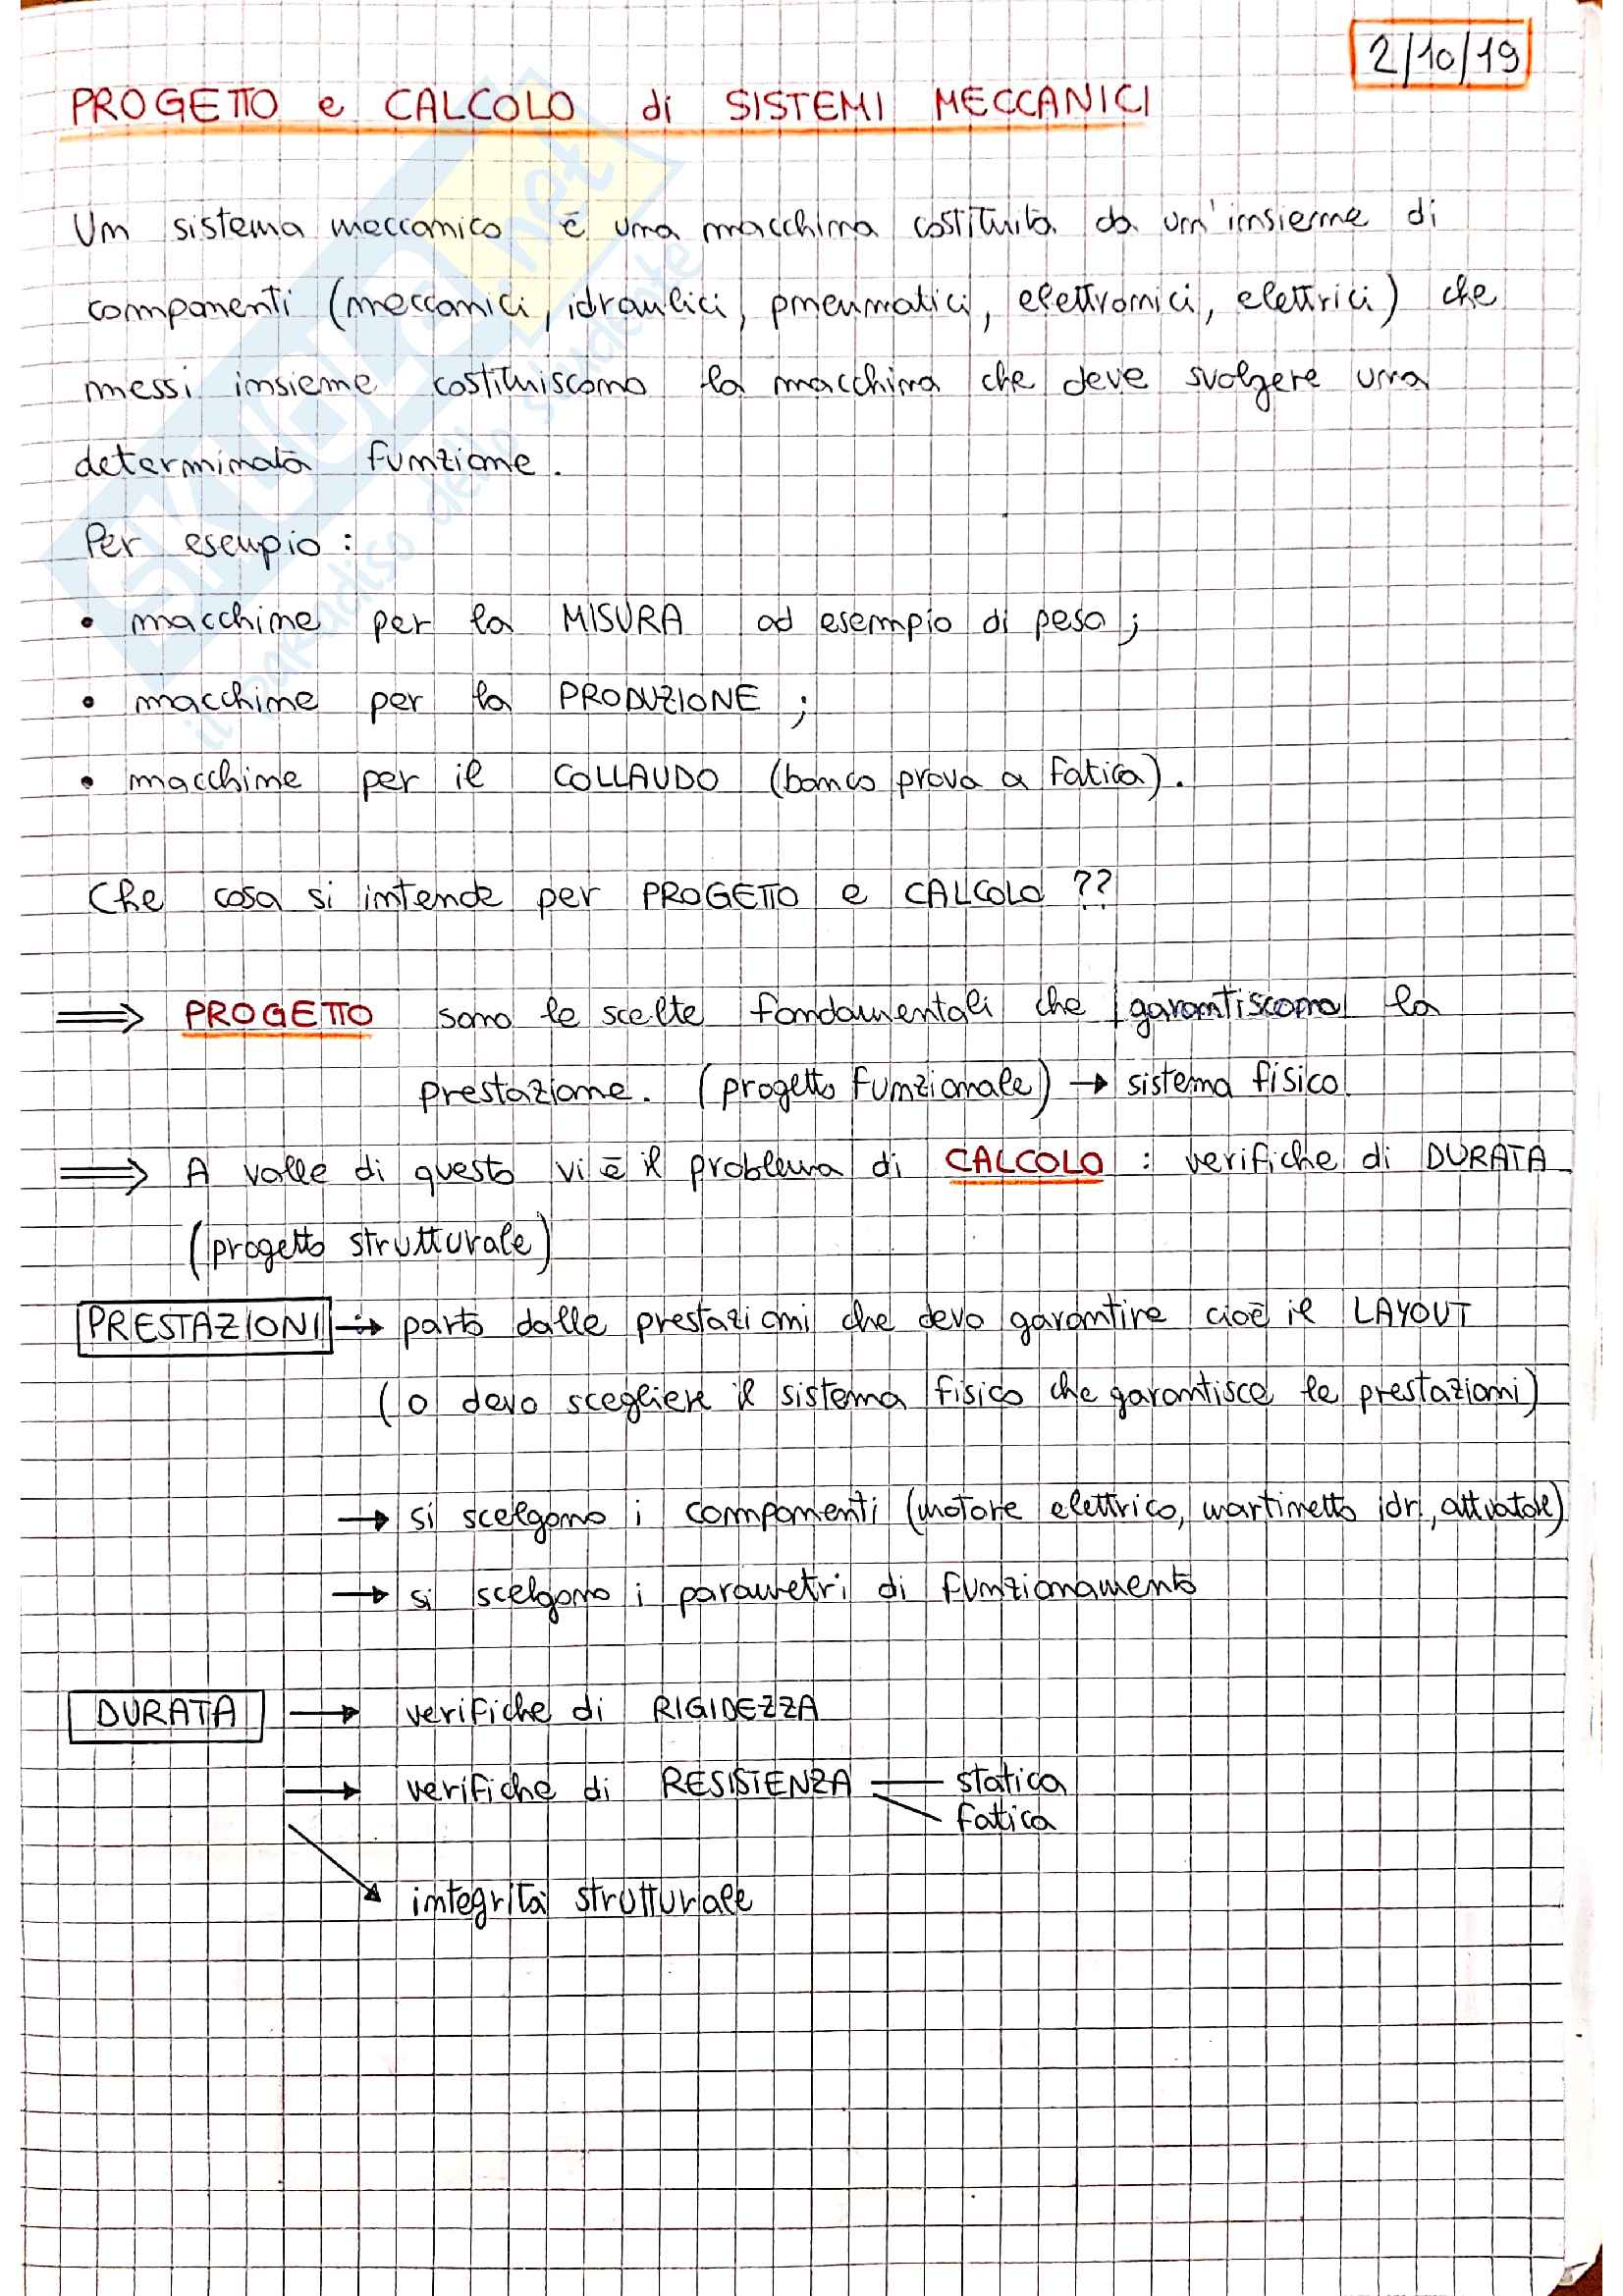 2/10/19
PROGETTO e CALCOLO di SISTEMI MECCANICI
Un sistema meccanico è una macchina costituita da un'insieme di
componenti (meccanici, idraulici, pneumatici, elettronici, elettrici) che
messi insieme costituiscono la macchina che deve svolgere una
determinata funzione.
Per esempio:
• macchine per la MISURA ad esempio di peso;
• macchine per la PRODUZIONE;
• macchine per il COLLAUDO (banco prova a fatica).
Che cosa si intende per PROGETTO e CALCOLO??
⟹ PROGETTO sono le scelte fondamentali che garantiscono la
prestazione. (progetto funzionale) → sistema fisico
⟹ A valle di questo vi è il problema di CALCOLO: verifiche di DURATA
(progetto strutturale)
PRESTAZIONI → parto dalle prestazioni che devo garantire cioè il LAYOUT
(o devo scegliere il sistema fisico che garantisce le prestazioni)
→ si scelgono i componenti (motore elettrico, martinetto idr., attuatore)
→ si scelgono i parametri di funzionamento
DURATA → verifiche di RIGIDEZZA
→ verifiche di RESISTENZA — statica
fatica
→ integrità strutturale
SKUOLA.net
il paradiso dello studente